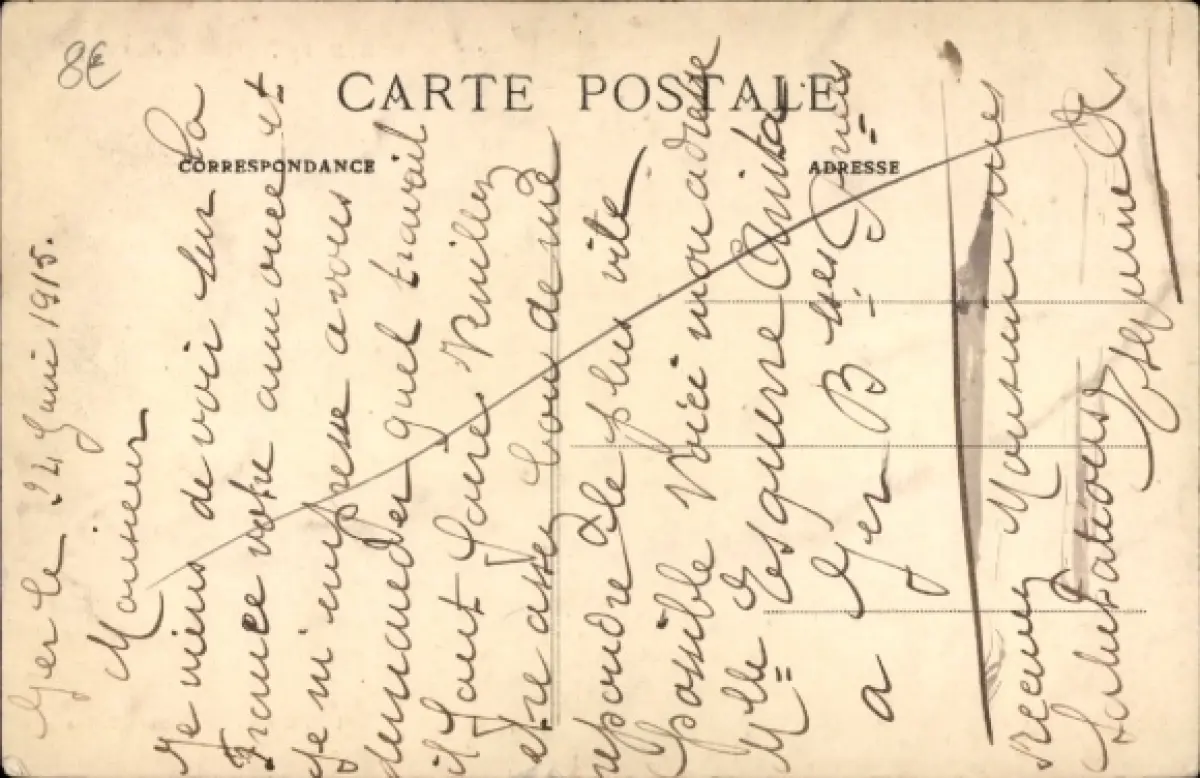 8€
CARTE POSTALE
CORRESPONDANCE
ADRESSE
Ger le 24 Juin 1915.
Monsieur
Je viens de voir sur la
France votre annonce et
je m'enpresse a vous
demander quel travail
il faut faire. Veuillez
etre assez bon de me
repondre Le plus vite
possible Voici mon adresse
Mlle Esquerre Anita
a Ger Bses Pnées
Recevez Monsieur mes
Salutations
Esquerre A